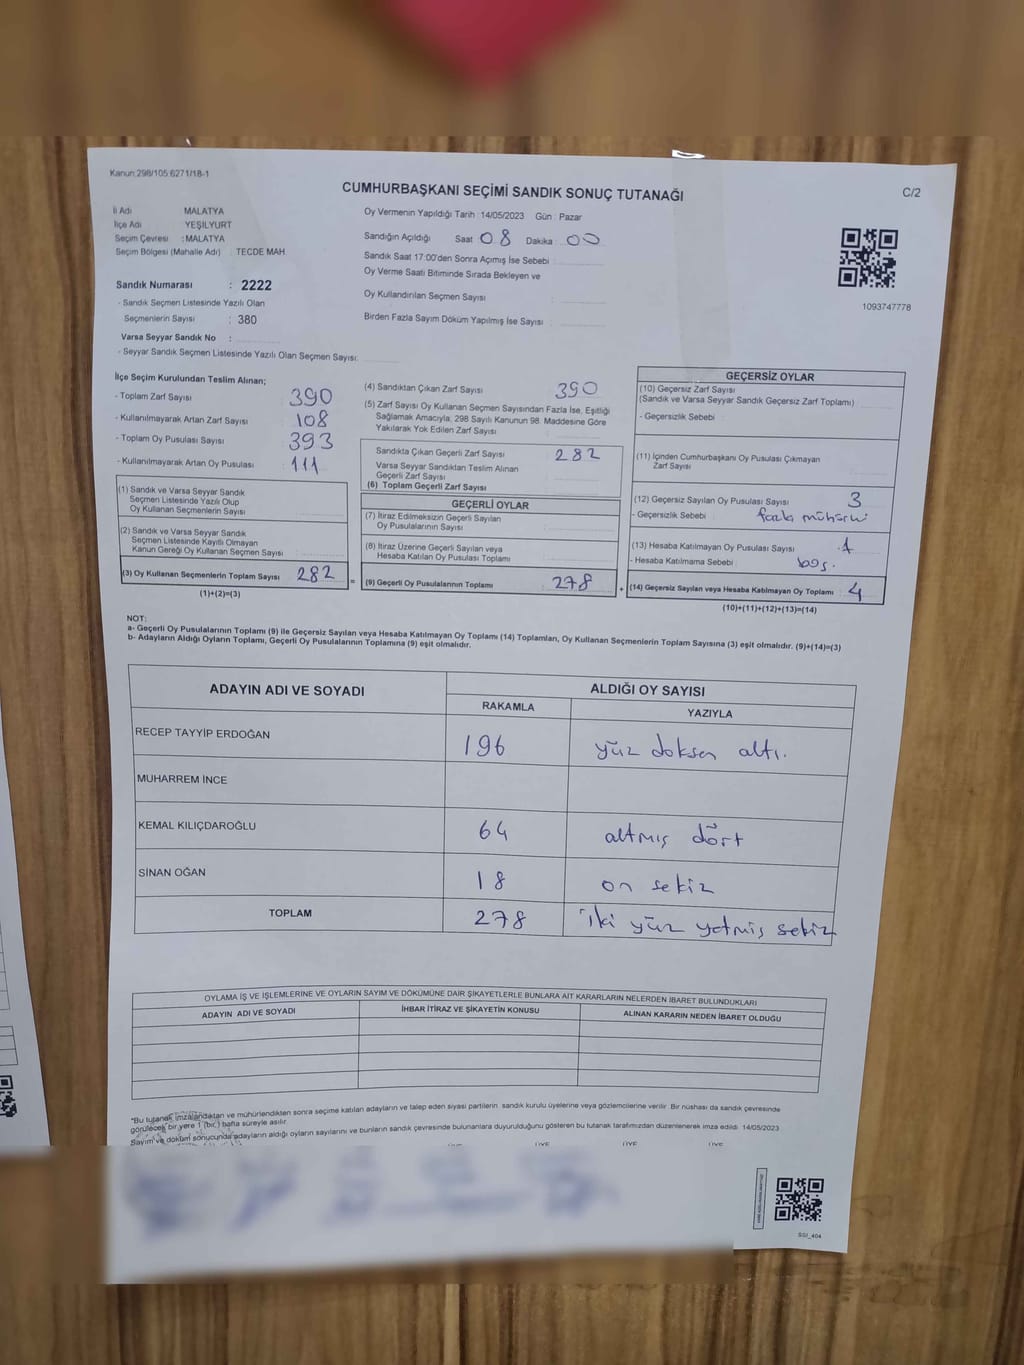 Kanun:298/105:6271/18-1
CUMHURBAŞKANI SEÇİMİ SANDIK SONUÇ TUTANAĞI
C/2
İl Adı MALATYA
İlçe Adı YEŞİLYURT
Seçim Çevresi : MALATYA
Seçim Bölgesi (Mahalle Adı) : TECDE MAH.
Oy Vermenin Yapıldığı Tarih : 14/05/2023 Gün : Pazar
Sandığın Açıldığı Saat 08 Dakika : 00
Sandık Saat 17:00'den Sonra Açımış İse Sebebi
Oy Verme Saati Bitiminde Sırada Bekleyen ve
Oy Kullandırılan Seçmen Sayısı :
Birden Fazla Sayım Döküm Yapılmış İse Sayısı :
1093747778
Sandık Numarası : 2222
- Sandık Seçmen Listesinde Yazılı Olan
Seçmenlerin Sayısı : 380
Varsa Seyyar Sandık No :
- Seyyar Sandık Seçmen Listesinde Yazılı Olan Seçmen Sayısı:
İlçe Seçim Kurulundan Teslim Alınan;
- Toplam Zarf Sayısı 390
- Kullanılmayarak Artan Zarf Sayısı 108
- Toplam Oy Pusulası Sayısı 393
- Kullanılmayarak Artan Oy Pusulası 111
(1) Sandık ve Varsa Seyyar Sandık
Seçmen Listesinde Yazılı Olup
Oy Kullanan Seçmenlerin Sayısı
(2) Sandık ve Varsa Seyyar Sandık
Seçmen Listesinde Kayıtlı Olmayan
Kanun Gereği Oy Kullanan Seçmen Sayısı
(3) Oy Kullanan Seçmenlerin Toplam Sayısı 282
(1)+(2)=(3)
(4) Sandıktan Çıkan Zarf Sayısı 390
(5) Zarf Sayısı Oy Kullanan Seçmen Sayısından Fazla İse, Eşitliği
Sağlamak Amacıyla, 298 Sayılı Kanunun 98. Maddesine Göre
Yakılarak Yok Edilen Zarf Sayısı
Sandıkta Çıkan Geçerli Zarf Sayısı 282
Varsa Seyyar Sandıktan Teslim Alınan
Geçerli Zarf Sayısı
(6) Toplam Geçerli Zarf Sayısı
GEÇERLİ OYLAR
(7) İtiraz Edilmeksizin Geçerli Sayılan
Oy Pusulalarının Sayısı
(8) İtiraz Üzerine Geçerli Sayılan veya
Hesaba Katılan Oy Pusulası Toplamı
= (9) Geçerli Oy Pusulalarının Toplamı 278
GEÇERSİZ OYLAR
(10) Geçersiz Zarf Sayısı
(Sandık ve Varsa Seyyar Sandık Geçersiz Zarf Toplamı)
- Geçersizlik Sebebi :
(11) İçinden Cumhurbaşkanı Oy Pusulası Çıkmayan
Zarf Sayısı
(12) Geçersiz Sayılan Oy Pusulası Sayısı 3
- Geçersizlik Sebebi : fazla mühürlü
(13) Hesaba Katılmayan Oy Pusulası Sayısı 1
- Hesaba Katılmama Sebebi : boş.
+ (14) Geçersiz Sayılan veya Hesaba Katılmayan Oy Toplamı : 4
(10)+(11)+(12)+(13)=(14)
NOT:
a- Geçerli Oy Pusulalarının Toplamı (9) ile Geçersiz Sayılan veya Hesaba Katılmayan Oy Toplamı (14) Toplamları, Oy Kullanan Seçmenlerin Toplam Sayısına (3) eşit olmalıdır. (9)+(14)=(3)
b- Adayların Aldığı Oyların Toplamı, Geçerli Oy Pusulalarının Toplamına (9) eşit olmalıdır.
ADAYIN ADI VE SOYADI ALDIĞI OY SAYISI
RAKAMLA YAZIYLA
RECEP TAYYİP ERDOĞAN 196 yüz doksan altı.
MUHARREM İNCE
KEMAL KILIÇDAROĞLU 64 altmış dört
SİNAN OĞAN 18 on sekiz
TOPLAM 278 iki yüz yetmiş sekiz
OYLAMA İŞ VE İŞLEMLERİNE VE OYLARIN SAYIM VE DÖKÜMÜNE DAİR ŞİKAYETLERLE BUNLARA AİT KARARLARIN NELERDEN İBARET BULUNDUKLARI
ADAYIN ADI VE SOYADI İHBAR İTİRAZ VE ŞİKAYETİN KONUSU ALINAN KARARIN NEDEN İBARET OLDUĞU
*Bu tutanak imzalandıktan ve mühürlendikten sonra seçime katılan adayların ve talep eden siyasi partilerin sandık kurulu üyelerine veya gözlemcilerine verilir. Bir nüshası da sandık çevresinde
görülecek bir yere 1 (bir) hafta süreyle asılır.
Sayım ve döküm sonucunda adayların aldığı oyların sayılarını ve bunların sandık çevresinde bulunanlara duyurulduğunu gösteren bu tutanak tarafımızdan düzenlenerek imza edildi. 14/05/2023
ÜYE ÜYE ÜYE
SSI_404